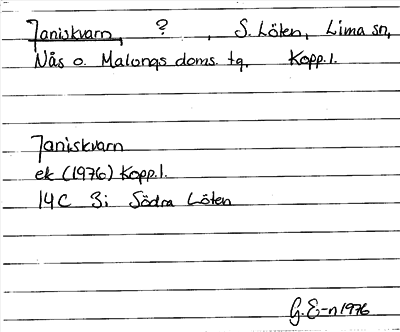 Janiskvarn, ? , S. Löten, Lima sn,
Nås o. Malungs doms. tg. Kopp.l.
Janiskvarn
ek (1976) Kopp.l.
14C 3i Södra Löten
G. E-n 1976